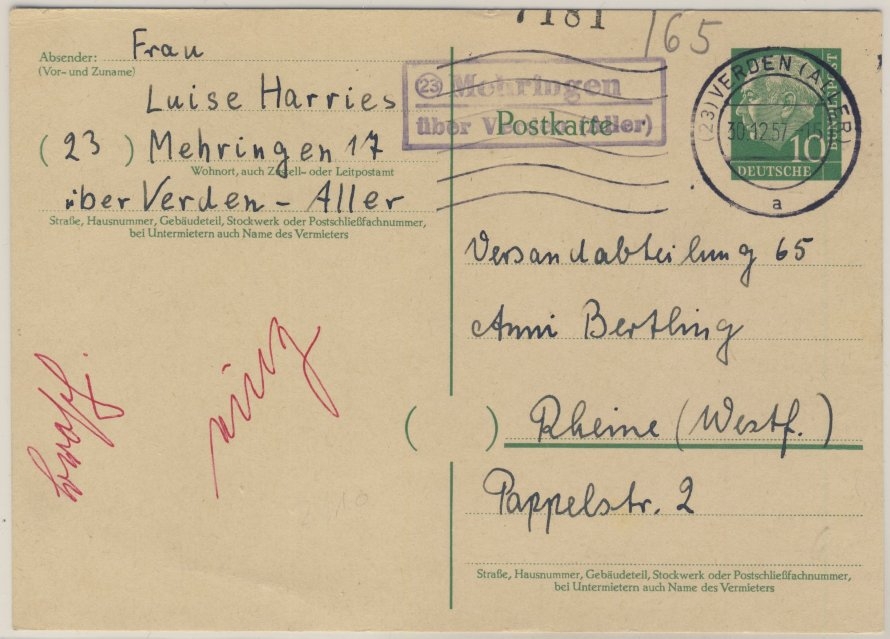 7181
165
Absender: Frau
(Vor- und Zuname)
Luise Harries
(23) Mehringen 17
Wohnort, auch Zustell- oder Leitpostamt
über Verden - Aller
Straße, Hausnummer, Gebäudeteil, Stockwerk oder Postschließfachnummer,
bei Untermietern auch Name des Vermieters
(23) Mehringen
über Verden (Aller)
Postkarte
(23) VERDEN (ALLER)
30.12.57
a
10
DEUTSCHE
BUNDESPOST
Versandabteilung 65
Anni Bertling
( ) Rheine (Westf.)
Pappelstr. 2
Straße, Hausnummer, Gebäudeteil, Stockwerk oder Postschließfachnummer,
bei Untermietern auch Name des Vermieters